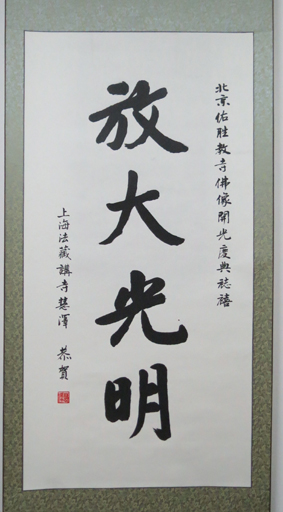 北京佑胜教寺佛像開光慶典誌禧
放大光明
上海法藏講寺慧澤 恭賀